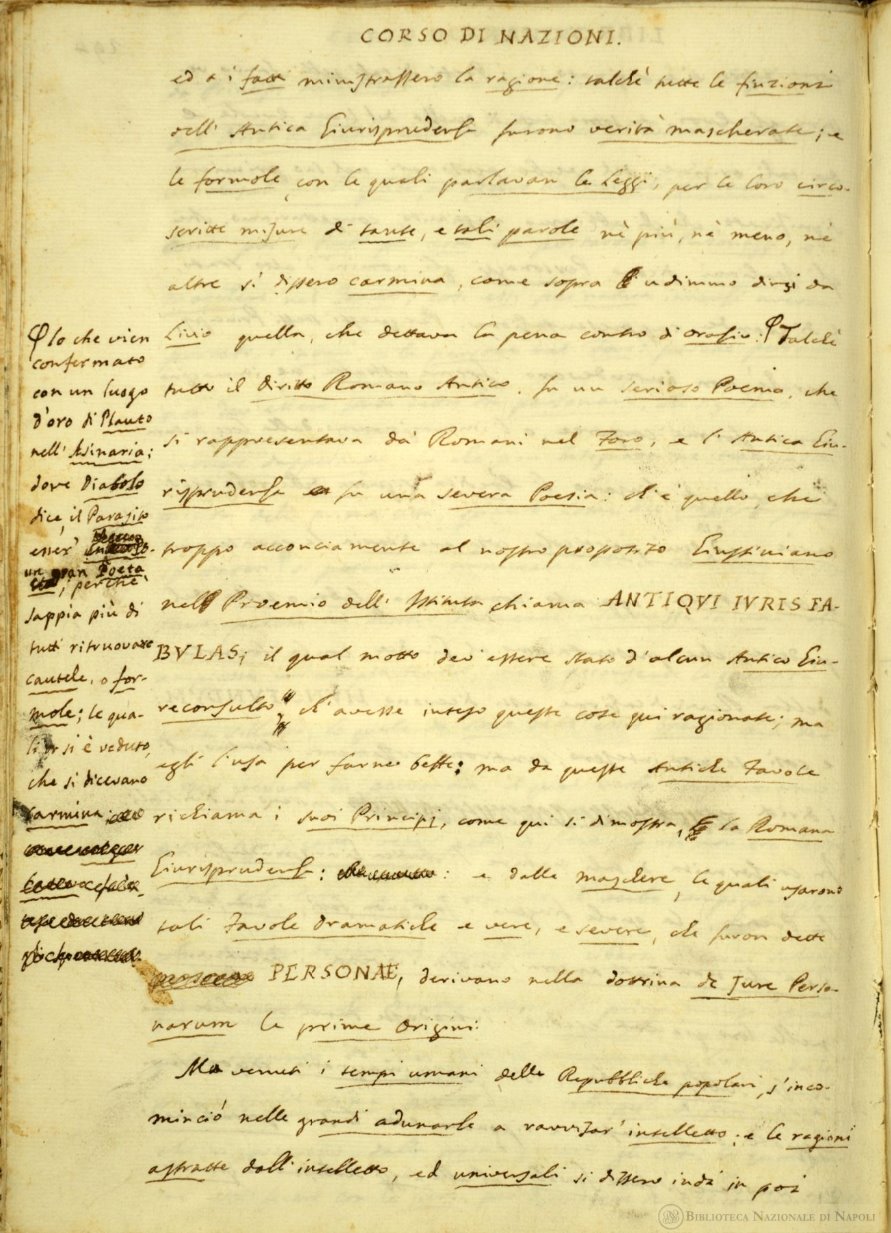 CORSO DI NAZIONI.
ed a i fatti ministrassero la ragione: talchè tutte le finzioni
dell' Antica Giurisprudenza furono verità mascherate; e
le formole, con le quali parlavan le Leggi, per le loro circo-
scritte misure di tante, e tali parole nè più, nè meno, nè
altre si dissero carmina, come sopra udimmo dirsi da
Livio quella, che dettava la pena contro di Orazio: Talchè
tutto il Diritto Romano Antico fu un serioso Poema, che
si rappresentava da' Romani nel Foro, e l' Antica Giu-
risprudenza fu una severa Poesia: ch'è quello, che
troppo acconciamente al nostro proposito Giustiniano
nel Proemio dell' Istituta chiama ANTIQVI IVRIS FA-
BVLAS; il qual motto dev' essere stato d'alcun Antico Giu-
reconsulto, ch'avesse inteso queste cose qui ragionate; ma
egli l'usa per farne beffe: ma da queste Antiche Favole
richiama i suoi Principj, come qui si dimostra, la Romana
Giurisprudenza: e dalle maschere, le quali usarono
tali Favole dramatiche e vere, e severe, che furon dette
PERSONAE, derivano nella dottrina de Jure Perso-
narum le prime Origini.
Ma venuti i tempi umani delle Repubbliche popolari, s'inco-
minciò nelle grandi adunanze a ravvisar' intelletto; e le ragioni
astratte dall' intelletto, ed universali si dissero indi in poi
lo che vien
confermato
con un luogo
d'oro di Plauto
nell' Asinaria;
dove Diabolo
dice, il Parasito
esser'
un gran Poeta
perchè
sappia più di
tutti ritruovare
cautele, o for-
mole; le qua-
li or si è veduto,
che si dicevano
carmina
BIBLIOTECA NAZIONALE DI NAPOLI